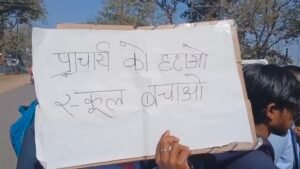 प्राचार्य को हटाओ
स्कूल बचाओ